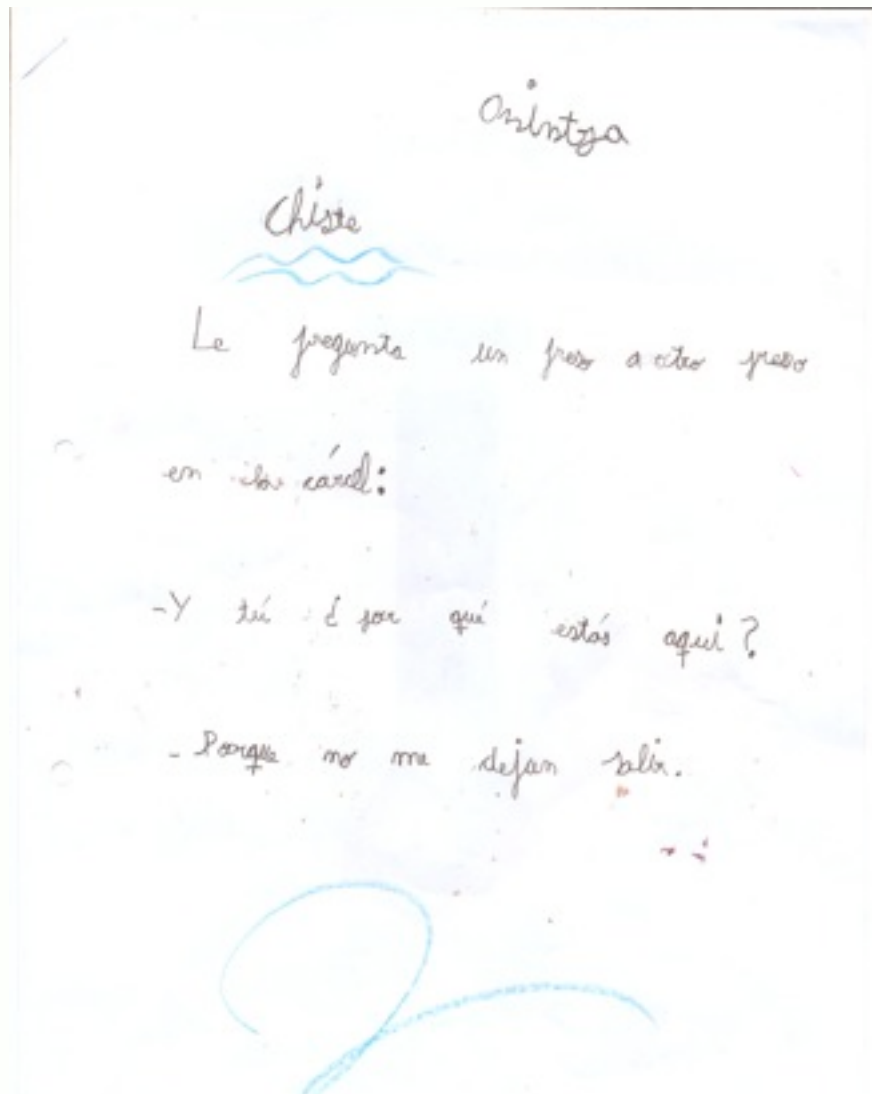 Chiste
Le pregunta un preso a otro preso
en la cárcel:
-Y tú ¿por qué estás aquí?
- Porque no me dejan salir.